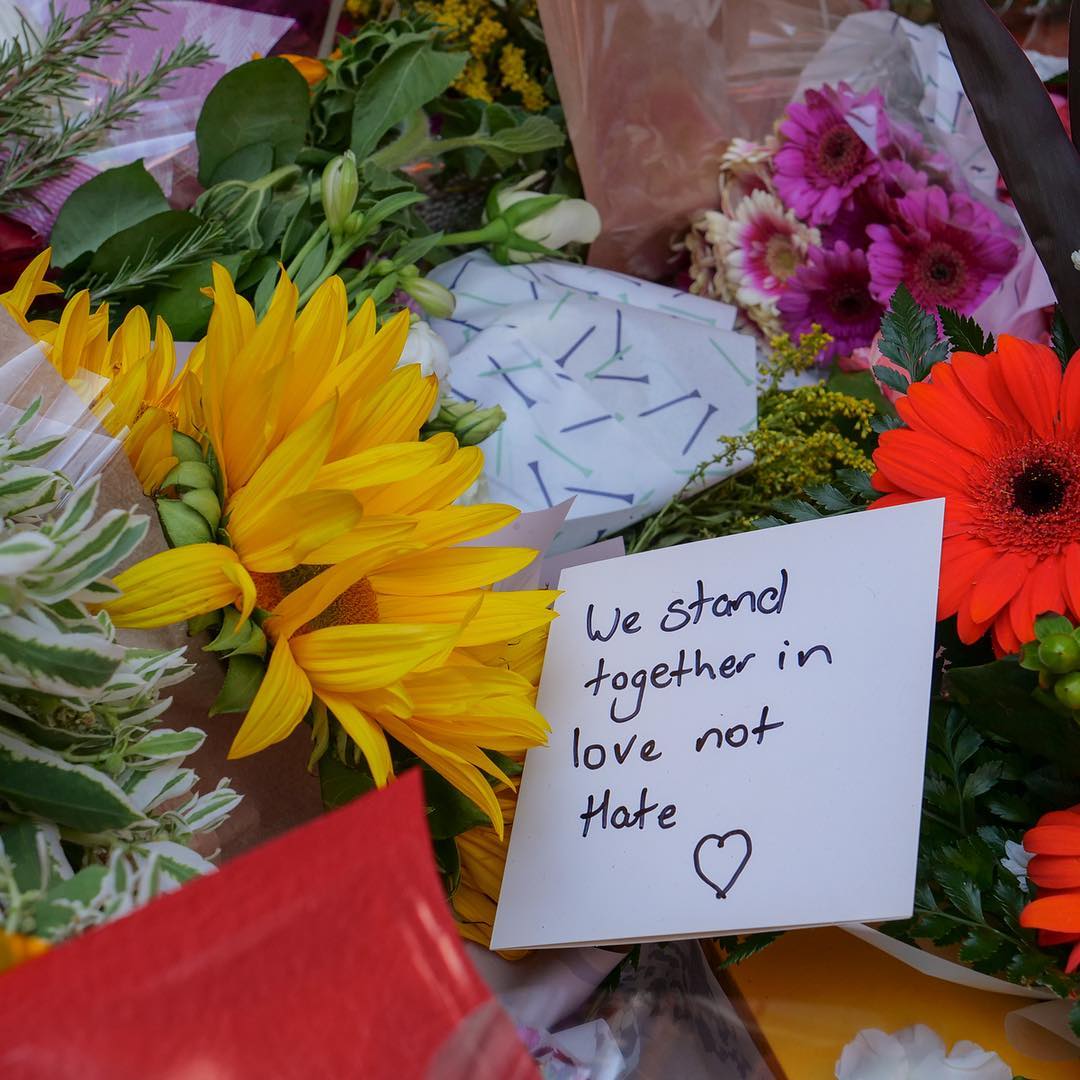 We stand
together in
love not
Hate